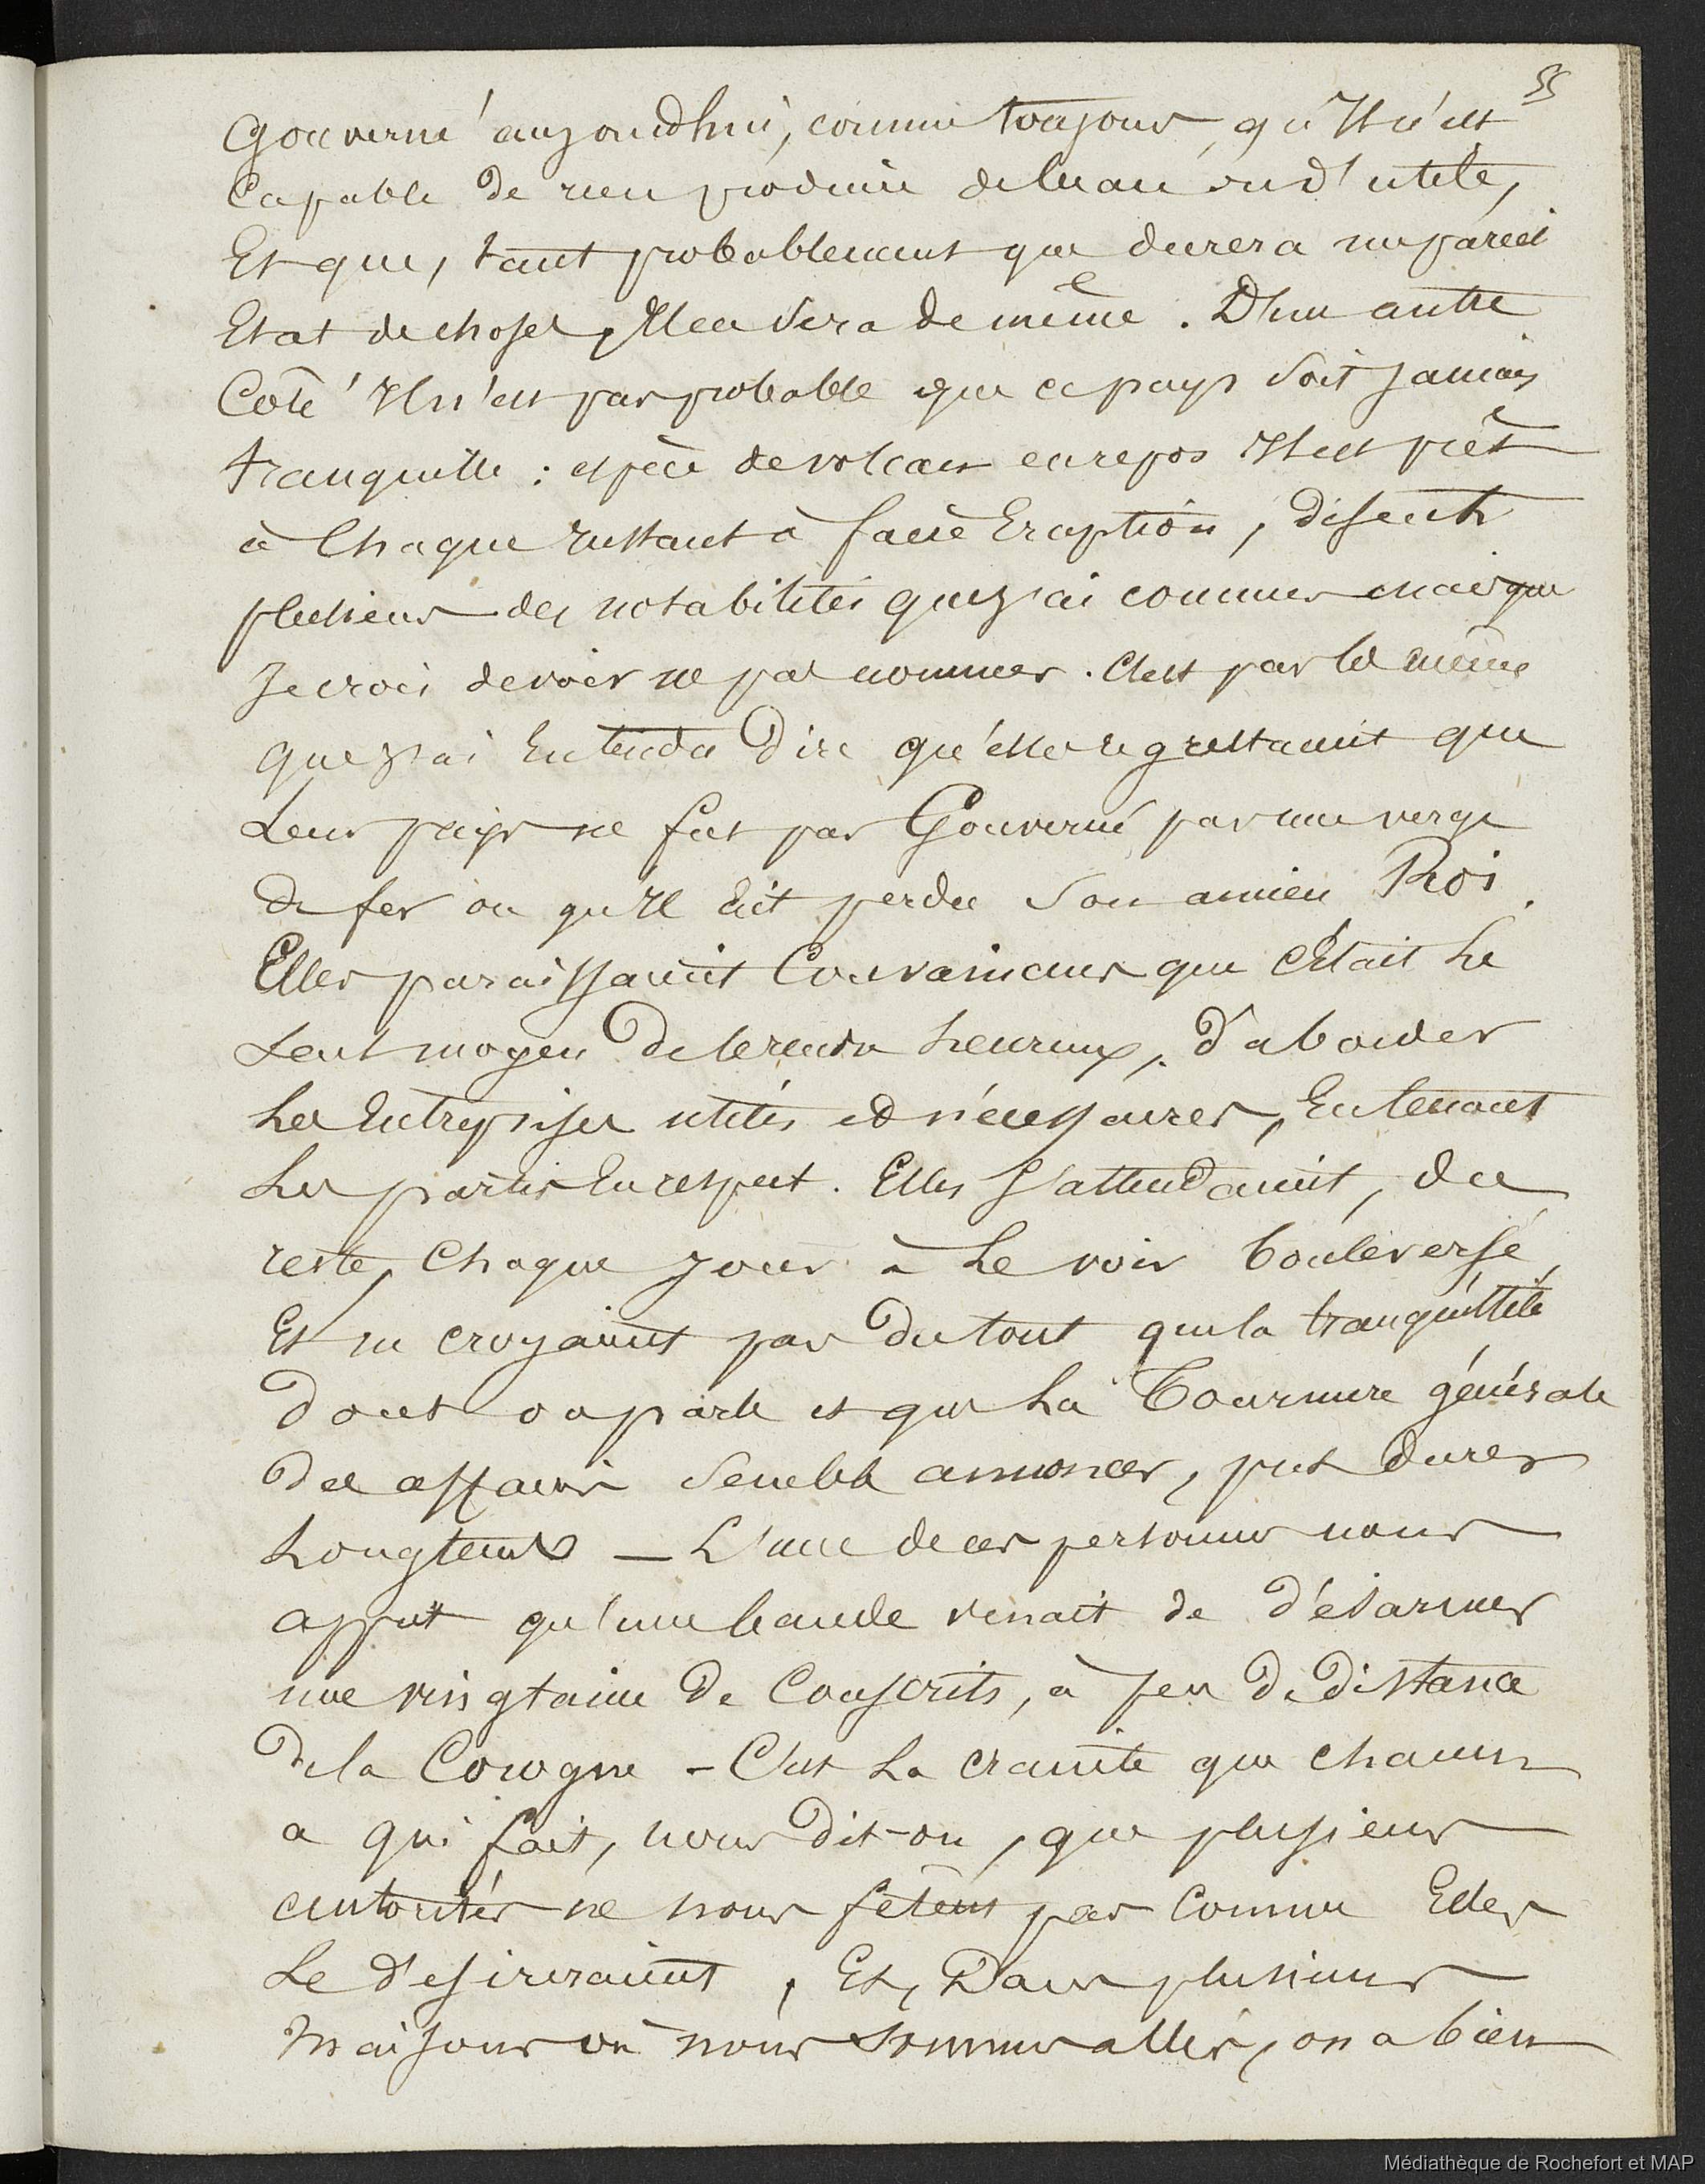 55
Gouverné aujourd'hui, comme toujours, qu'Il n'est
Capable de rien produire de beau ou d'utile,
Et que, tant probablement que durera un pareil
Etat de choses, Il en sera de même. D'un autre
Coté Il n'est pas probable que ce pays soit Jamais
tranquille : espèce de volcan en repos Il est prêt
à Chaque Instant à faire Eruption, disent
plusieurs des notabilités que J'ai connues mais que
Je crois devoir ne pas nommer. C'est par les mêmes
que J'ai Entendu Dire qu'elles regrettaient que
Leur pays ne fut pas Gouverné par une verge
de fer ou qu'Il Eut perdu son ancien Roi.
Elles paraissaient Convaincues que C'Etait Le
Seul moyen de le rendre heureux, d'aborder
Les Entreprises utiles et nécessaires, En tenant
Les partis En respect. Elles s'attendaient, du
reste, Chaque Jour à Le voir bouleversé,
Et ne croyaient pas Du tout que la tranquillité
Dont on parle et que La Tournure générale
Des affaires semble annoncer, put durer
Longtems — L'une de ces personnes nous
apprit qu'une bande venait de désarmer
une vingtaine de Conscrits, à peu de Distance
de la Corogne - C'est La crainte que chacun
a qui fait, nous Dit-on, que plusieurs
autorités ne nous fêtent pas Comme Elles
Le désireraient, Et, Dans plusieurs
Maisons où nous sommes allés, on a bien
Médiathèque de Rochefort et MAP